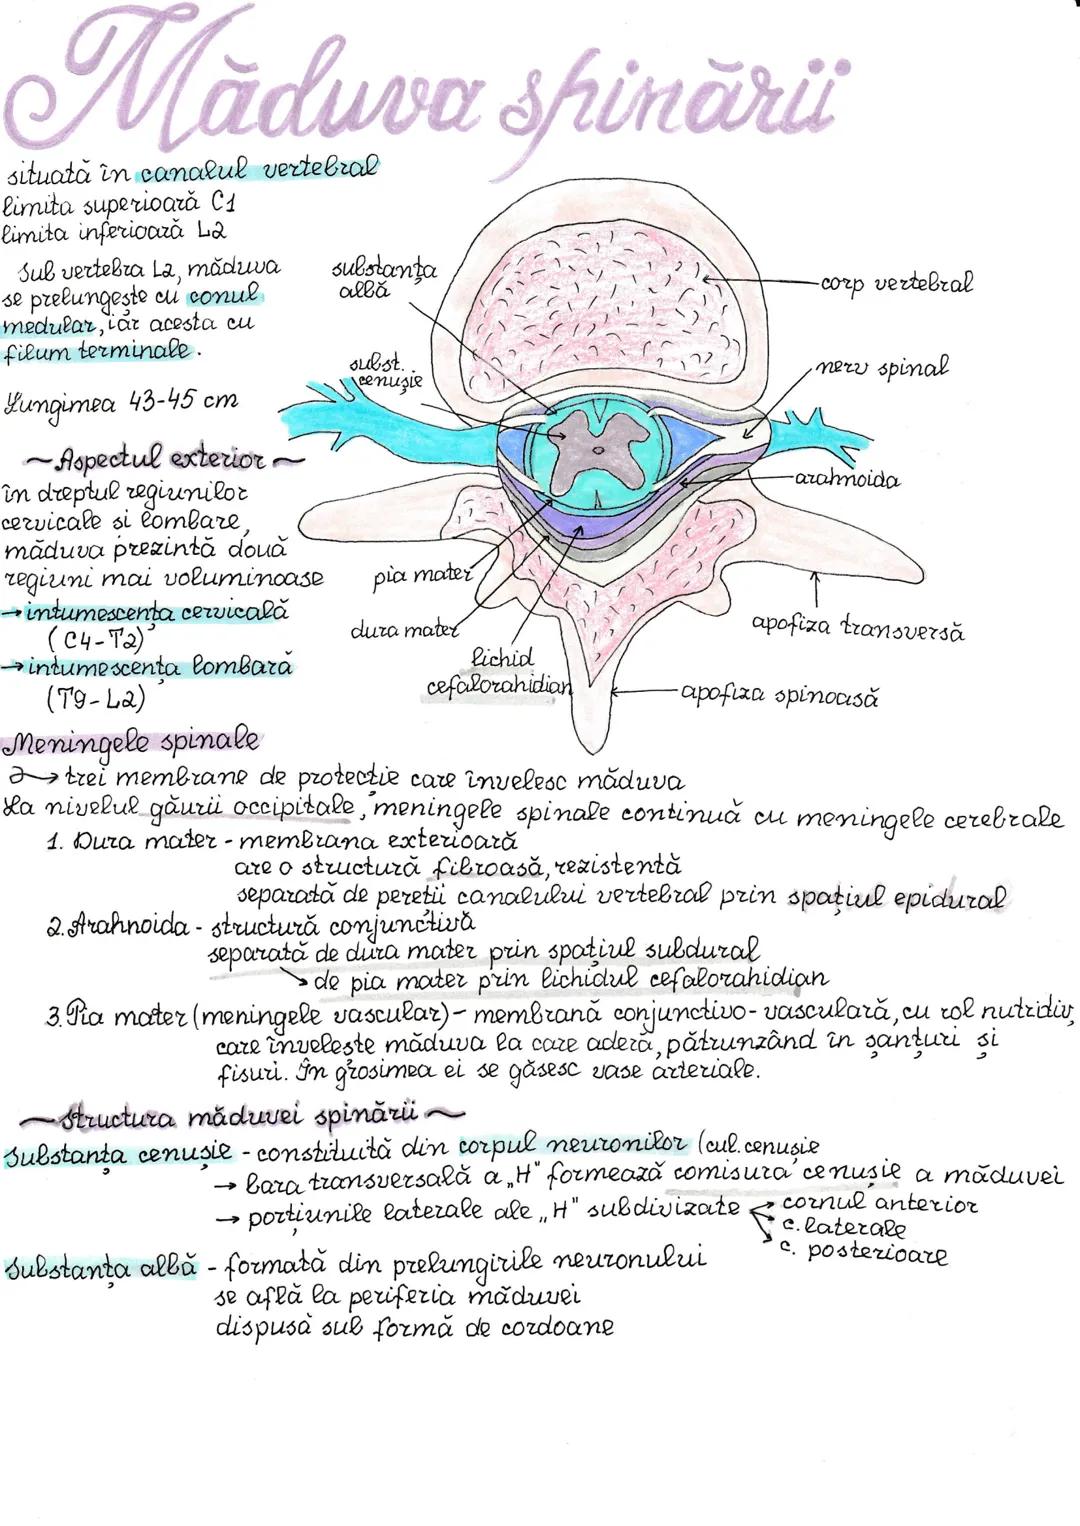 Măduva spinării
situată în canalul vertebral
limita superioară C1
limita inferioară L2
Sub vertebra L2, măduva
se prelungește cu conul
medular, iar acesta cu
filum terminale.
Lungimea 43-45 cm
~Aspectul exterior~
în dreptul regiunilor
cervicale si lombare,
măduva prezintă două
regiuni mai voluminoase
→ intumescența cervicală
(C4-T2)
→ intumescența lombară
(T9-L2)
substanța
albă
subst.
cenușie
corp vertebral
nerv spinal
arahnoida
pia mater
dura mater
lichid
cefalorahidian
apofiza transversă
apofiza spinoasă
Meningele spinale
→ trei membrane de protecție care învelesc măduva
La nivelul găurii occipitale, meningele spinale continuă cu meningele cerebrale
1. Dura mater - membrana exterioară
are o structură fibroasă, rezistentă
separată de peretii canalului vertebral prin spațiul epidural
2. Arahnoida - structură conjunctivă
separată de dura mater prin spațiul subdural
→ de pia mater prin lichidul cefalorahidian
3. Pia mater (meningele vascular) - membrană conjunctivo-vasculară, cu rol nutridiv,
care învelește măduva la care aderă, pătrunzând în șanțuri și
fisuri. În grosimea ei se găsesc vase arteriale.
~Structura măduvei spinării~
Substanța cenușie - constituită din corpul neuronilor (cul. cenușie
→ bara transversală a „H" formează comisura cenușie a măduvei
→ porțiunile laterale ale „H" subdivizate → cornul anterior
c. laterale
c. posterioare
Substanța albă - formată din prelungirile neuronului
se află la periferia măduvei
dispusă sub formă de cordoane